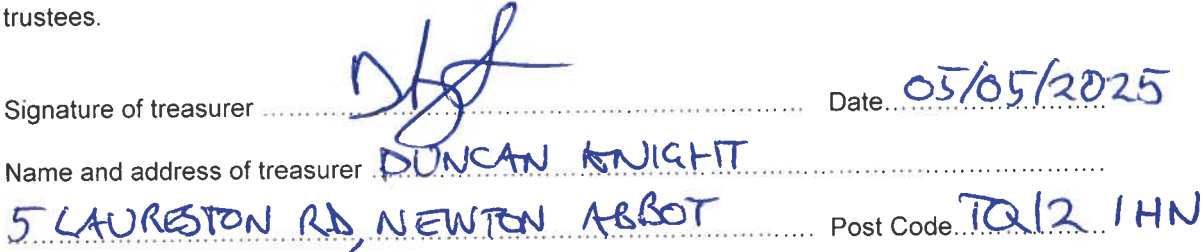 trustees.
Signature of treasurer Date 05/05/2025
Name and address of treasurer DUNCAN KNIGHT
5 LAURESTON RD, NEWTON ABBOT Post Code TQ12 1HN